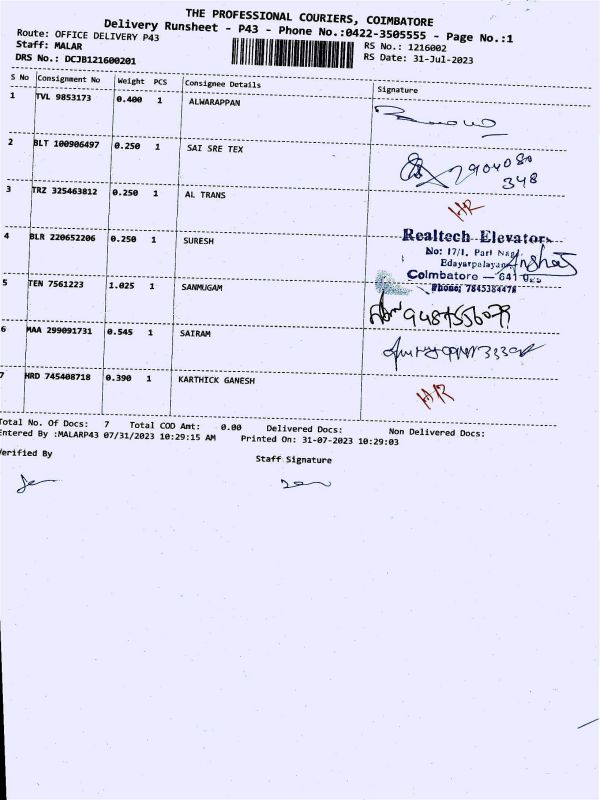 THE PROFESSIONAL COURIERS, COIMBATORE
Delivery Runsheet - P43 - Phone No.:0422-3505555 - Page No.:1
Route: OFFICE DELIVERY P43
RS No.: 1216002
Staff: MALAR
RS Date: 31-Jul-2023
DRS No.: DCJB121600201
S No Consignment No Weight PCS Consignee Details Signature
1 TVL 9853173 0.400 1 ALWARAPPAN
2 BLT 100906497 0.250 1 SAI SRE TEX
2904080
348
3 TRZ 325463812 0.250 1 AL TRANS
HR
4 BLR 220652206 0.250 1 SURESH
Realtech Elevators
No: 17/1, Pari Nagar
Edayarpalayam
Coimbatore - 641 025
Phone: 7845384478
5 TEN 7561223 1.025 1 SANMUGAM
6 MAA 299091731 0.545 1 SAIRAM
7 HRD 745408718 0.390 1 KARTHICK GANESH
HR
Total No. Of Docs: 7 Total COD Amt: 0.00 Delivered Docs: Non Delivered Docs:
Entered By :MALARP43 07/31/2023 10:29:15 AM Printed On: 31-07-2023 10:29:03
Verified By
Staff Signature